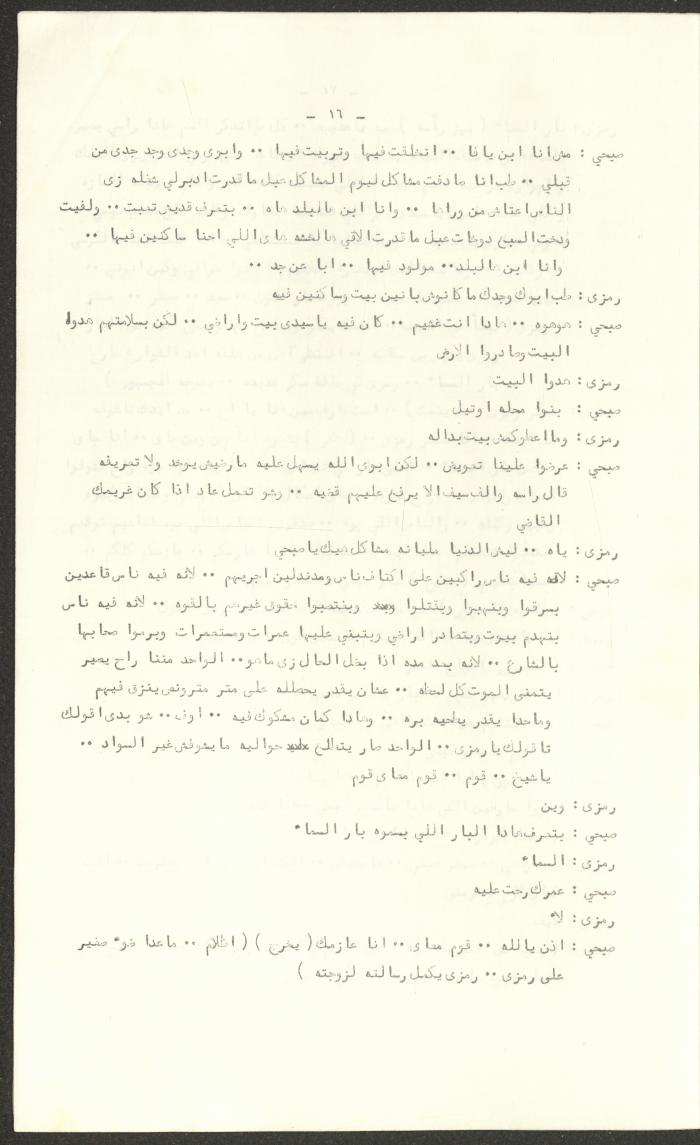 - ١٦ -
صبحي : مش انا ابن يافا ٠٠ انخلقت فيها وتربيت فيها ٠٠ وابوى وجدى وجد جدى من
قبلي ٠٠ طب انا صادفت مشاكل ليوم المشاكل عبل ما قدرت ادبرلي شغله زى
الناس اعتاش من وراها ٠٠ وانا ابن هالبلد هاه ٠٠ بتعرف قديش تعبت ٠٠ ولفيت
ودخت السبع دوخات عبل ما قدرت الاقي هالخشه هاى اللي احنا ساكنين فيها ٠٠
وانا ابن هالبلد ٠٠ مولود فيها ٠٠ ابا عن جد ٠٠
رمزى : طب ابوك وجدك ما كانوش بانين بيت وساكنين فيه
صبحي : هوهوه ٠٠ هادا انت غشيم ٠٠ كان فيه ياسيدى بيت واراضي ٠٠ لكن بسلامتهم هدوا
البيت وصادروا الارض
رمزى : هدوا البيت
صبحي : بنوا محله اوتيل
رمزى : وما اعطوكمش بيت بداله
صبحي : عرضوا علينا تعويض ٠٠ لكن ابوى الله يسهل عليه مارضيش يوخد ولا تعريفه
قال راسه والف سيف الا يرفع عليهم قضيه ٠٠ وشو تعمل عاد اذا كان غريمك
القاضي
رمزى : ياه ٠٠ ليش الدنيا مليانه مشاكل هيك ياصبحي
صبحي : لانه فيه ناس راكبين على اكتاف ناس ومدندلين اجريهم ٠٠ لانه فيه ناس قاعدين
بسرقوا وبنهبوا وبقتلوا وبغتصبوا حقوق غيرهم بالقوه ٠٠ لانه فيه ناس
بتهدم بيوت وبتصادر اراضي وبتبني عليها عمرات ومستعمرات وبرموا صحابها
بالشارع ٠٠ لانه بعد مده اذا بظل الحال زى ماهو ٠٠ الواحد مننا راح يصير
يتمنى الموت كل لحظه ٠٠ عشان يقدر يحصلله على متر مترونص ينزق فيهم
وماحدا يقدر يطحيه بره ٠٠ وهادا كمان مشكوك فيه ٠٠ اوف ٠٠ شو بدى اقولك
تا قولك يارمزى ٠٠ الواحد صار يتطلع حواليه ما يشوفش غير السواد ٠٠
ياشيخ ٠٠ قوم ٠٠ قوم معاى قوم
رمزى : وين
صبحي : بتعرف هادا البار اللي بسموه بار السماء
رمزى : السماء
صبحي : عمرك رحت عليه
رمزى : لاء
صبحي : اذن يالله ٠٠ قوم معاى ٠٠ انا عازمك ( يخرج ) ( اظلام ٠٠ ماعدا ضوء صغير
على رمزى ٠٠ رمزى يكمل رسالته لزوجته )